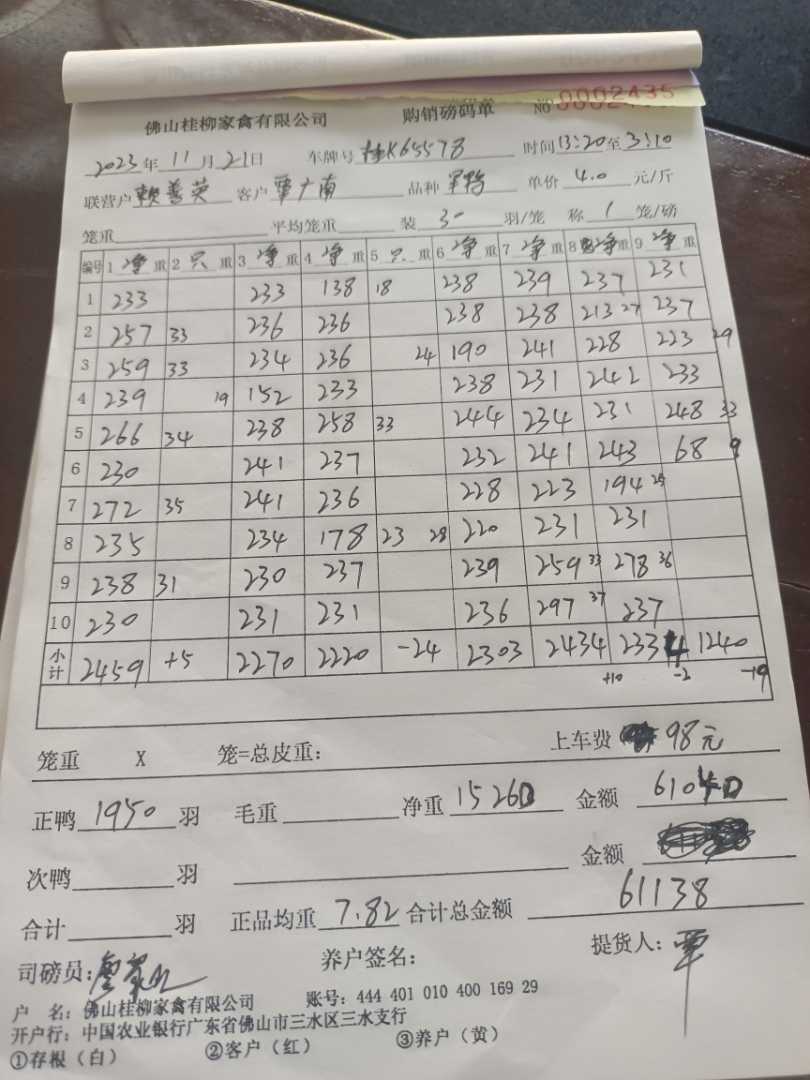 佛山桂柳家禽有限公司 购销磅码单 NO 0002435
2023年11月21日 车牌号 桂K65578 时间13:20至3:10
联营户 赖善英 客户 覃广南 品种 单价 4.0 元/斤
笼重 平均笼重 装 30 羽/笼 称 1 笼/磅
编号 1净重 2只重 3净重 4净重 5只重 6净重 7净重 8净重 9净重
1 233 233 138 18 238 239 237 231
2 257 33 236 236 238 238 213 27 237
3 259 33 234 236 24 190 241 228 223 29
4 239 19 152 233 238 231 242 233
5 266 34 238 258 33 244 234 231 248 33
6 230 241 237 232 241 243 68 9
7 272 35 241 236 228 223 194 25
8 235 234 178 23 28 220 231 231
9 238 31 230 237 239 259 33 278 36
10 230 231 231 236 297 37 237
小计 2459 +5 2270 2220 -24 2303 2434 2334 1240
+10 -2 -19
笼重 X 笼=总皮重: 上车费 98元
正鸭 1950 羽 毛重 净重 15260 金额 61040
次鸭 羽 金额
合计 羽 正品均重 7.82 合计总金额 61138
司磅员: 养户签名: 提货人: 覃
户 名: 佛山桂柳家禽有限公司 账号: 444 401 010 400 169 29
开户行: 中国农业银行广东省佛山市三水区三水支行
①存根(白) ②客户(红) ③养户(黄)